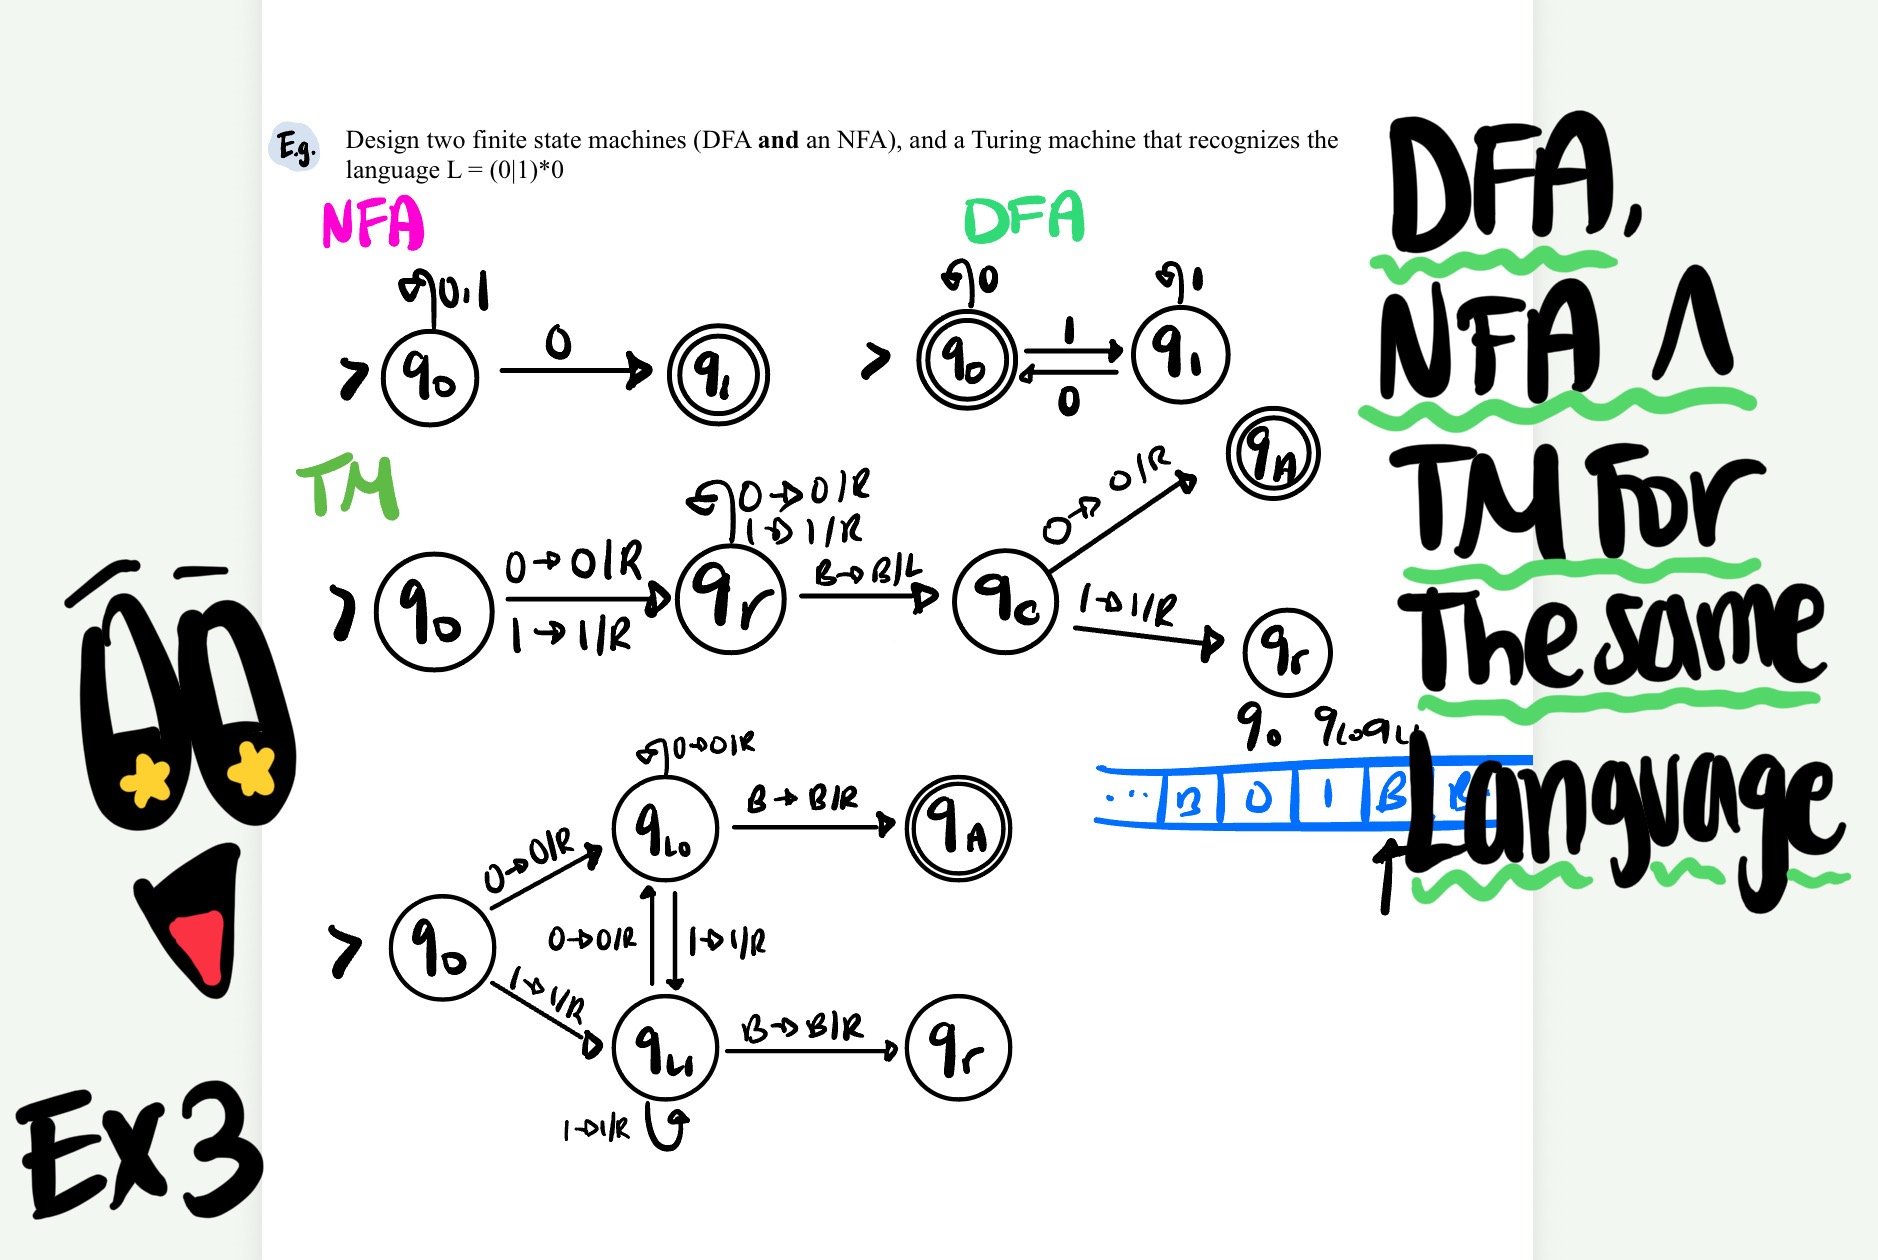 E.g. Design two finite state machines (DFA and an NFA), and a Turing machine that recognizes the
language L = (0|1)*0
NFA
0,1
> q0
0
q1
DFA
0
1
> q0
1
0
q1
TM
> q0
0→0/R
1→1/R
qr
0→0/R
1→1/R
B→B/L
qc
0→0/R
qA
1→1/R
qr
> q0
0→0/R
1→1/R
qL0
0→0/R
B→B/R
qA
0→0/R
1→1/R
qL1
1→1/R
B→B/R
qr
q0 qL0 qL1
... B 0 1 B B
DFA,
NFA ∧
TM For
The same
Language
Ex3